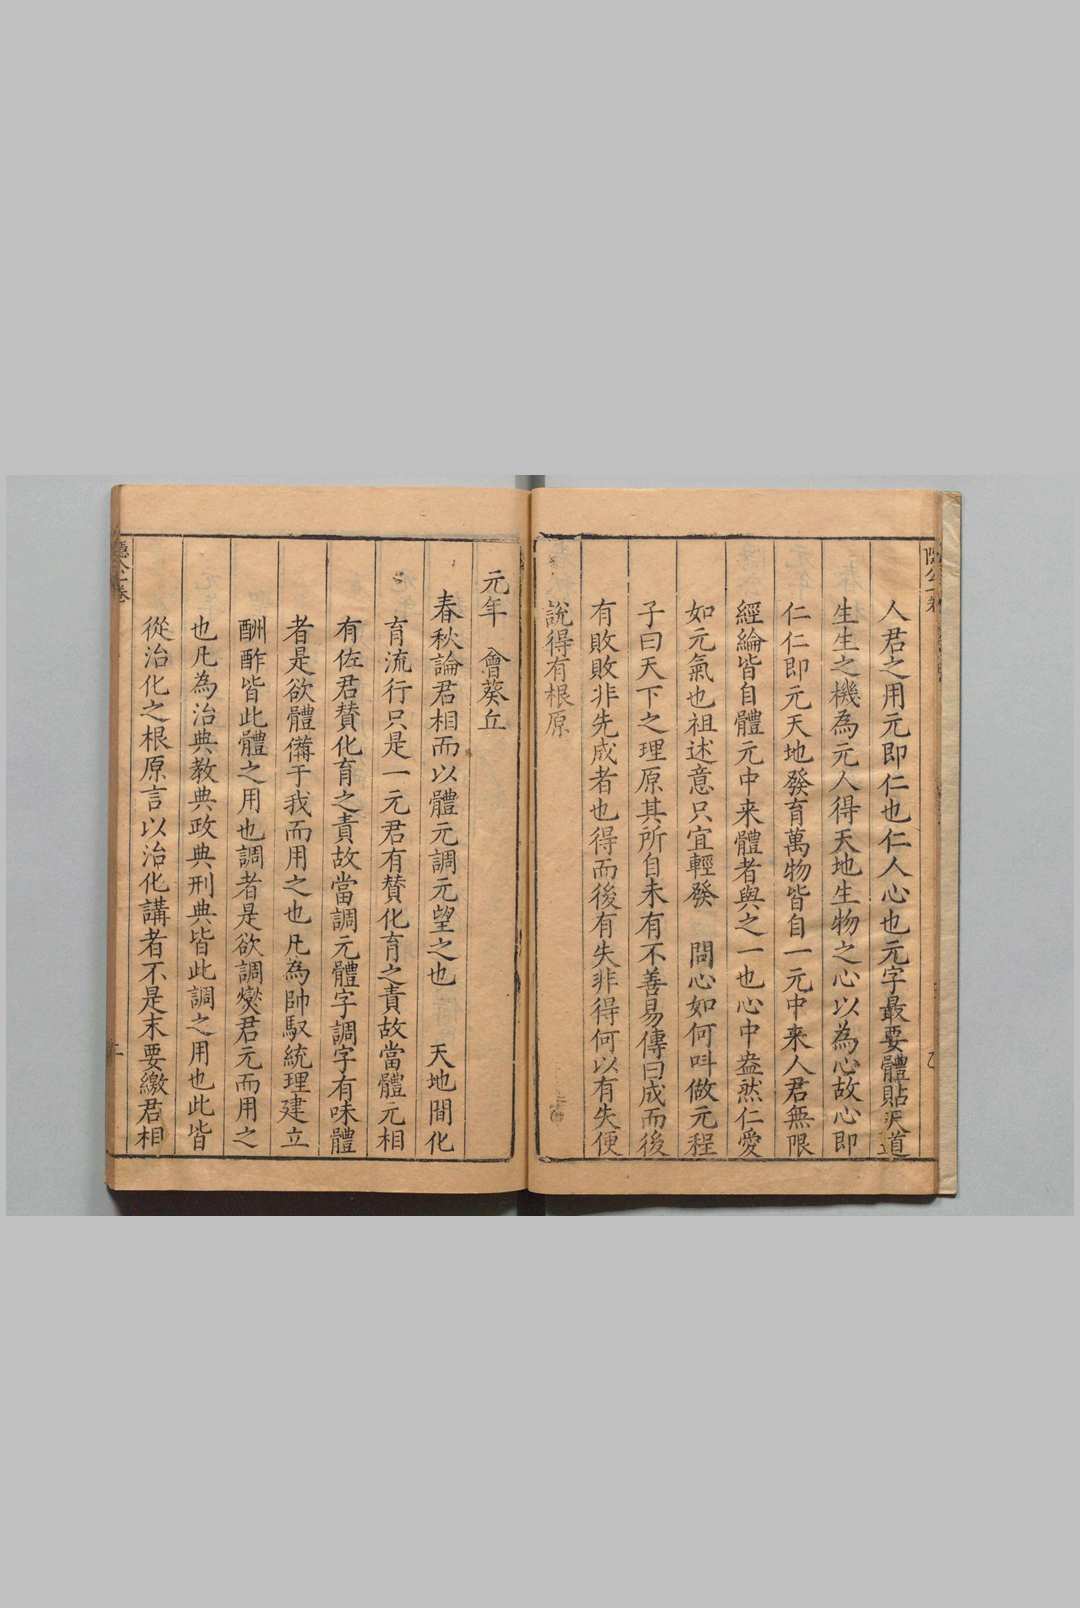 人君之用元即仁也仁人心也元字最要體貼天道
生生之機為元人得天地生物之心以為心故心即
仁仁即元天地發育萬物皆自一元中来人君無限
經綸皆自體元中来體者與之一也心中盎然仁愛
如元氣也祖述意只宜輕發 問心如何呌做元程
子曰天下之理原其所自未有不善易傳曰成而後
有敗敗非先成者也得而後有失非得何以有失便
說得有根原
元年 會葵丘
春秋論君相而以體元調元望之也 天地間化
育流行只是一元君有賛化育之責故當體元相
有佐君賛化育之責故當調元體字調字有味體
者是欲體備于我而用之也凡為帥馭統理建立
酬酢皆此體之用也調者是欲調爕君元而用之
也凡為治典教典政典刑典皆此調之用也此皆
從治化之根原言以治化講者不是末要繳君相